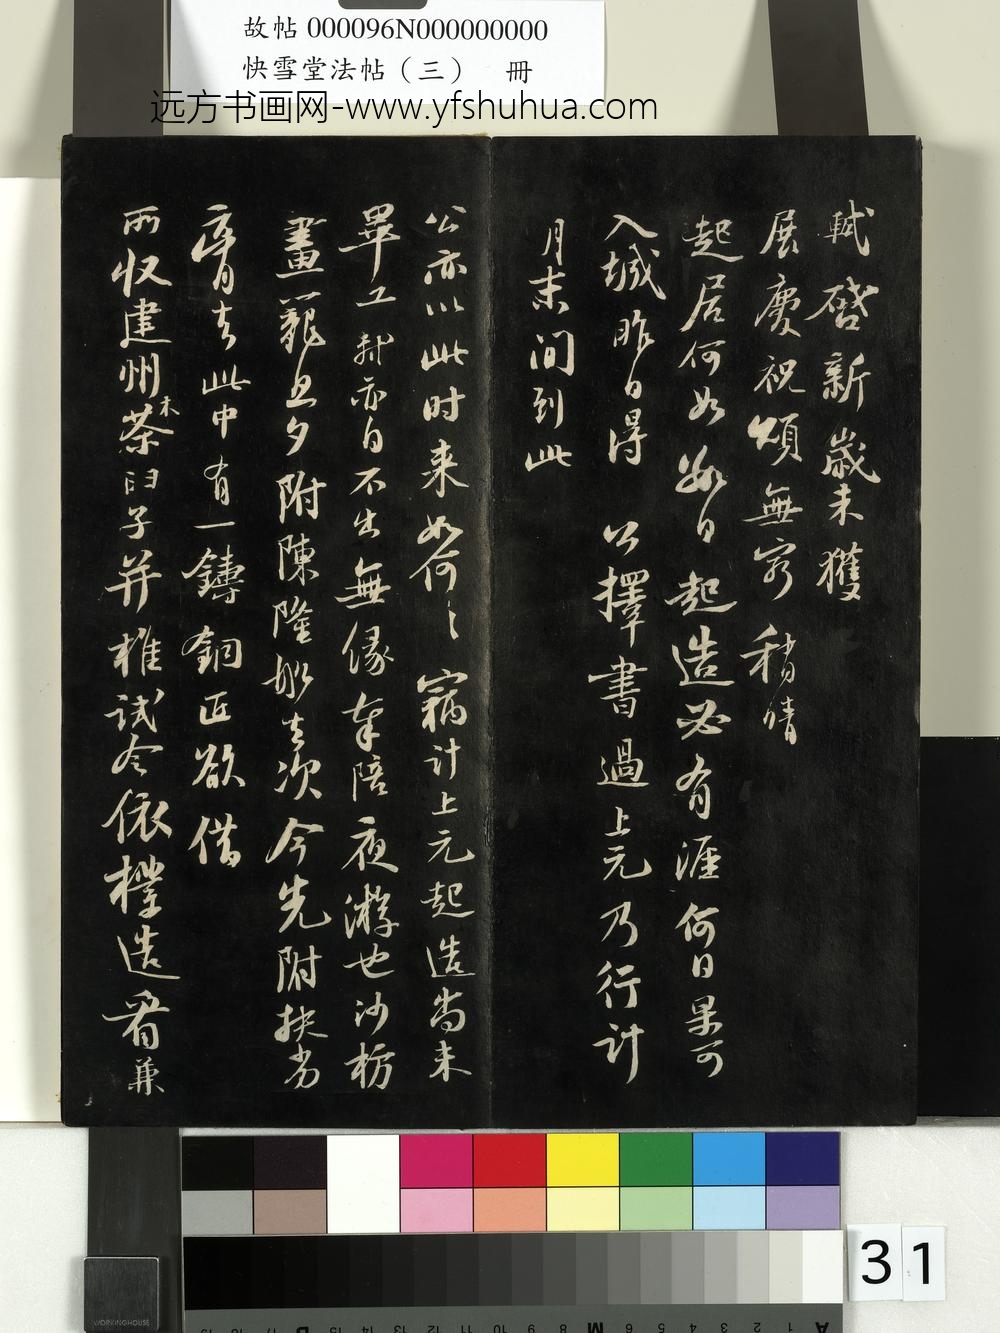 故帖000096N000000000
快雪堂法帖（三） 冊
远方书画网-www.yfshuhua.com
軾啓新歲未獲
展慶祝頌無窮稍晴
起居何如數日起造必有涯何日果可
入城昨日得 公擇書過上元乃行計
月末間到此
公亦以此时来如何〻竊计上元起造尚未
畢工軾亦自不出無緣奉陪夜游也沙枋
畫籠旦夕附陳隆船去次今先附扶劣
膏去此中有一鑄銅匠欲借
所收建州木茶臼子并椎試令依樣造看兼
31
WORKINGHOUSE